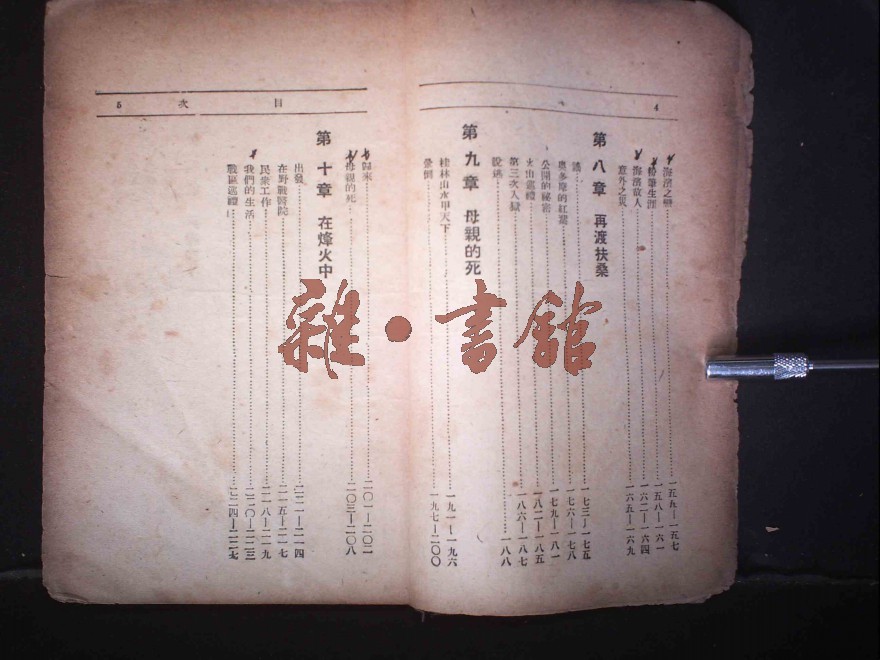 4
海濱之戀 一五九—一五七
粉筆生涯 一五八—一六一
海濱故人 一六二—一六四
意外之災 一六五—一六九
第八章 再渡扶桑
一七三—一七五
奧多摩的紅葉 一七六—一七八
公開的秘密 一七九—一八一
火山巡禮 一八二—一八五
第三次入獄 一八六—一八七
脫逃 一八八
第九章 母親的死
桂林山水甲天下 一九一—一九六
暈倒 一九七—二〇〇
目次 5
歸來 二〇一—二〇二
母親的死 二〇三—二〇八
第十章 在烽火中
出發 二一四
在野戰醫院 二一五—二一七
民衆工作 二一八—二一九
我們的生活 二二〇—二二三
戰區巡禮 二二四—二二七
雜·書館